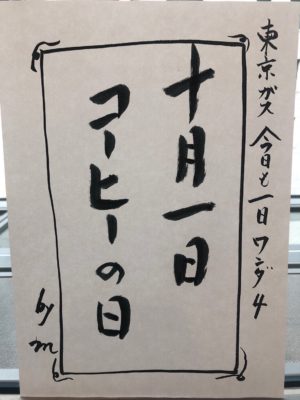 東京ガス 今日も一日ワンダ4
十月一日
コーヒーの日
by m